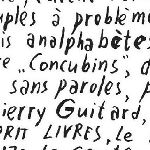 uples à problème
is analphabètes
re „Concubins", d
sans paroles, p
ierry Guitard,
PRIT LIVRES, le